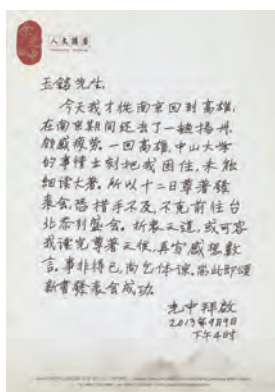 人文講座
玉銘先生：
今天我才從南京回到高雄，
在南京期間還去了一趟揚州，
頗感疲勞。一回高雄，中山大学
的事情立刻把我困住，未能
細讀大著。所以十二日尊著發
表会恐措手不及，不克前往台
北参列盛会。折衷之道，或可容
我讀完尊著之後，再寫感想數
言。事非得已，尚乞体諒。耑此即頌
新書發表会成功。
光中拜啟
2013年9月9日
下午4時